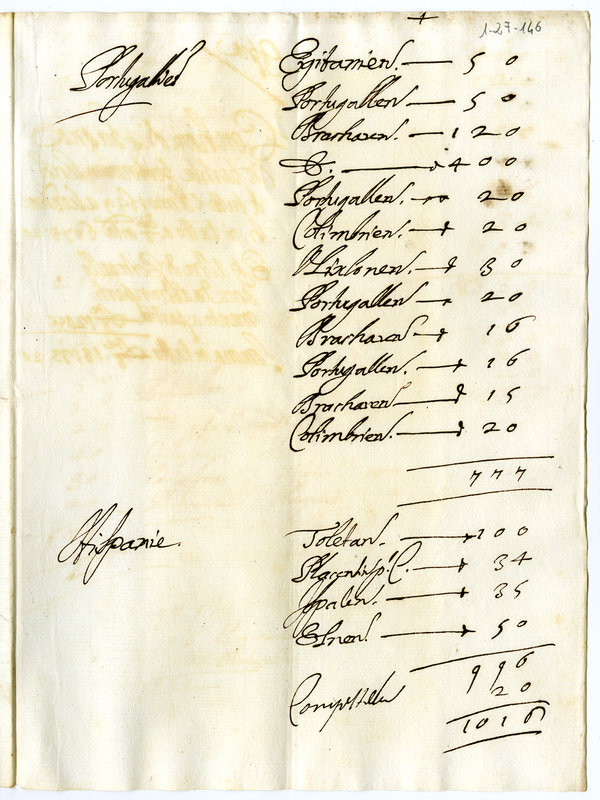 1-27-146
Portugallie
Egitanien. 50
Portugallen. 50
Bracharen. 120
S. 400
Portugallen. 20
Colimbrien. 20
Ulixbonen. 30
Portugallen. 20
Bracharen 16
Portugallen. 16
Bracharen 15
Colimbrien. 20
777
Hispanie.
Toletan. 100
Placentisp. C. 34
Ispalen. 35
Elnen. 50
996
Compostellan 20
1016